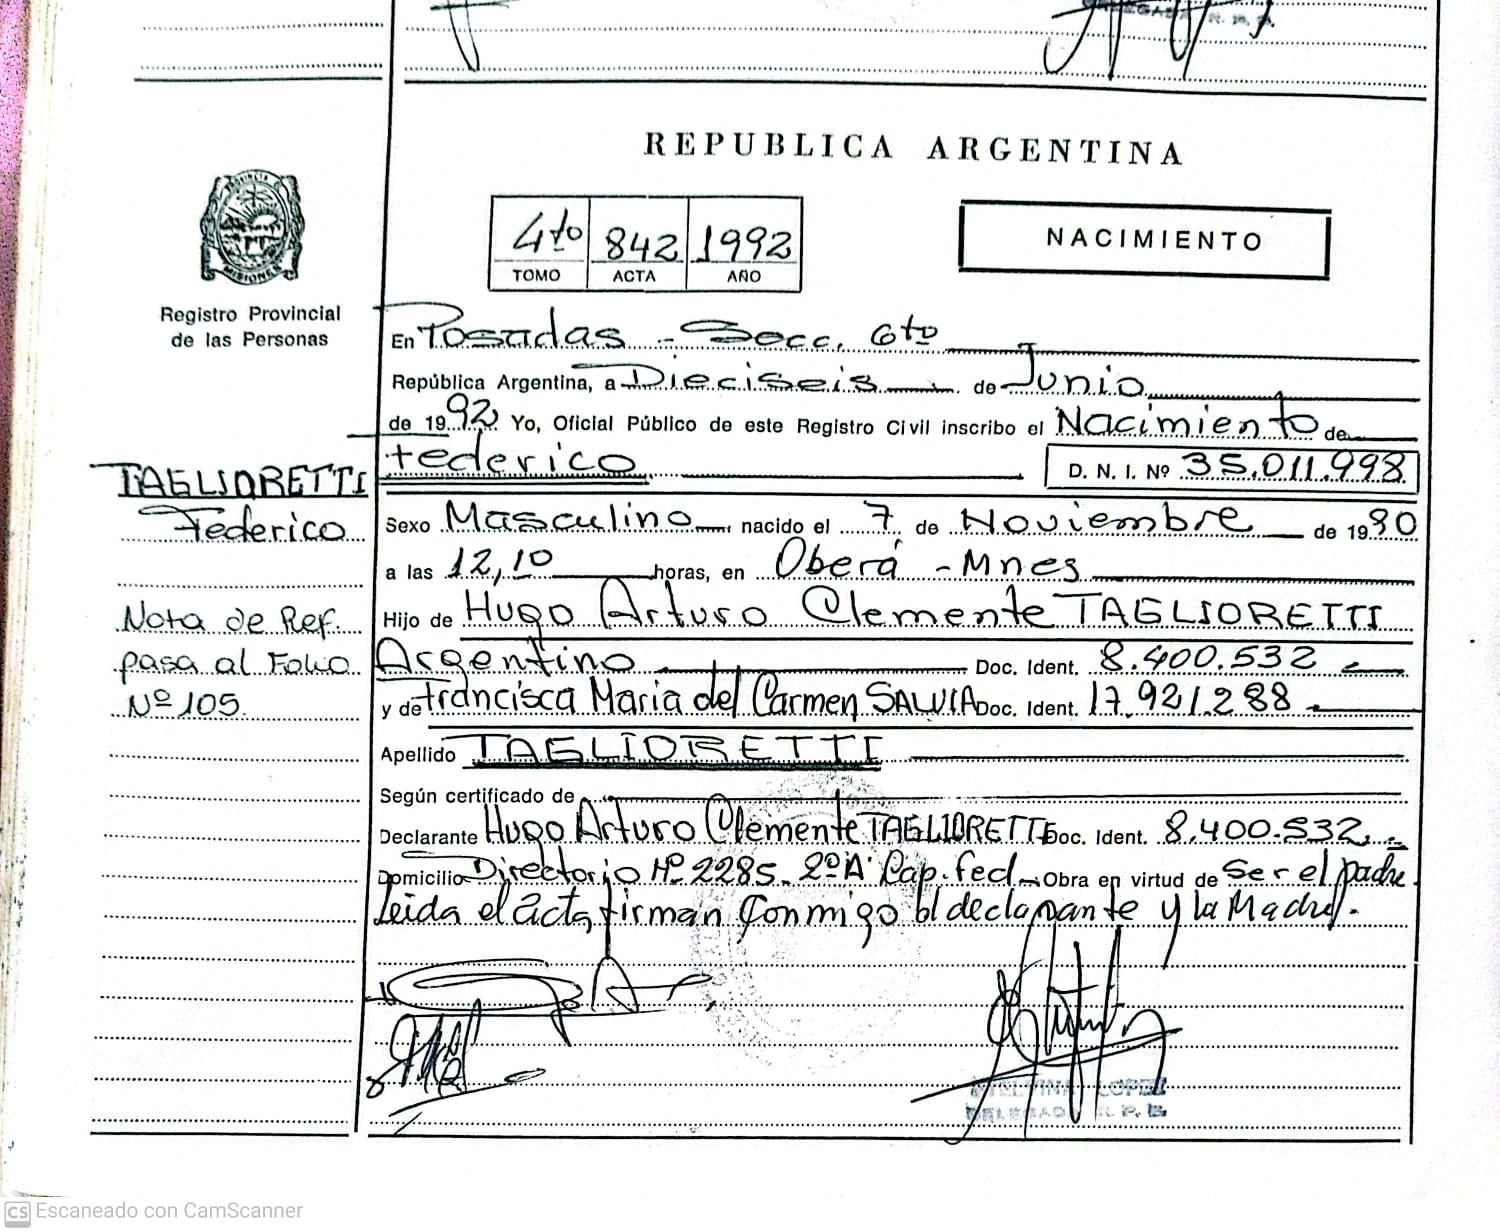 REPUBLICA ARGENTINA
4to 842 1992
TOMO ACTA AÑO
NACIMIENTO
MISIONES
Registro Provincial
de las Personas
En Posadas - Secc. 6to
República Argentina, a Dieciseis de Junio
de 1992 Yo, Oficial Público de este Registro Civil inscribo el Nacimiento de
Federico D. N. I. Nº 35.011.998
TAGLIORETTI
Federico
Sexo Masculino nacido el 7 de Noviembre de 1990
a las 12,10 horas, en Oberá - Mnes
Nota de Ref.
pasa al Folio
Nº 105.
Hijo de Hugo Arturo Clemente TAGLIORETTI
Argentino Doc. Ident. 8.400.532
y de Francisca Maria del Carmen SALVIA Doc. Ident. 17.921.288
Apellido TAGLIORETTI
Según certificado de
Declarante Hugo Arturo Clemente TAGLIORETTI Doc. Ident. 8.400.532
Domicilio Directorio Nº 2285. 2º A Cap. Fed Obra en virtud de Ser el padre
Leida el acta, firman conmigo el declarante y la Madre.
LOPEZ
DELEGADO R. P. P.
CS Escaneado con CamScanner